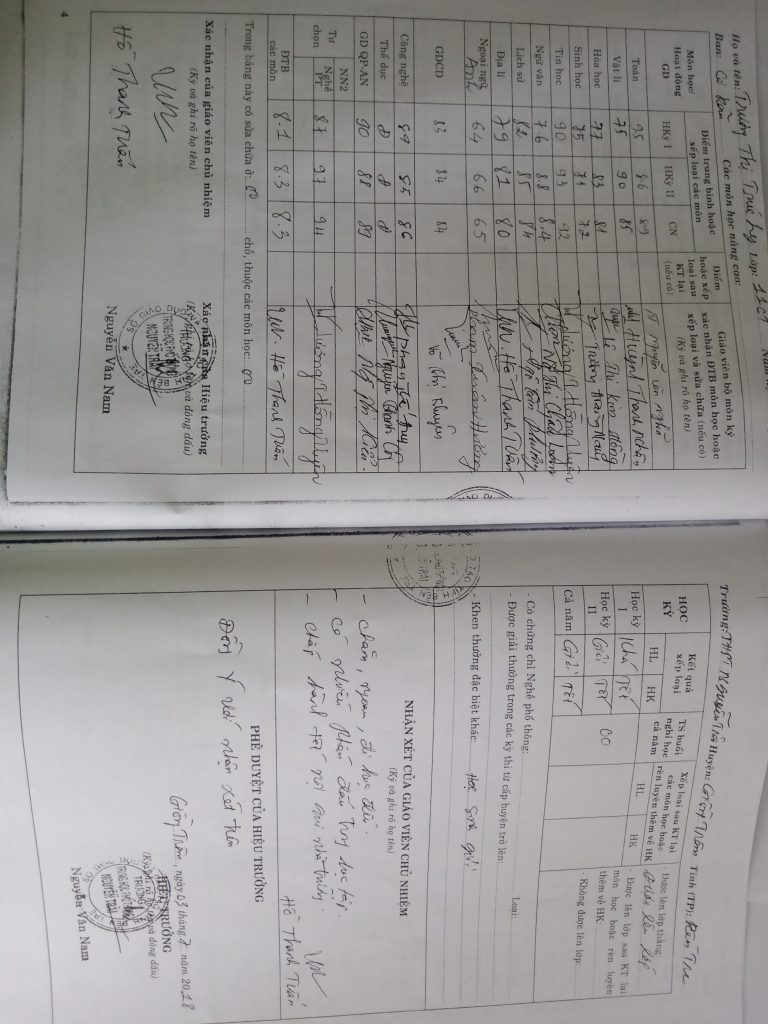 Họ và tên: Trương Thị Trúc Ly Lớp: 11C1 Năm
Ban: Cơ bản Các môn học nâng cao:
Môn học/ Hoạt động GD
Điểm trung bình hoặc xếp loại các môn
HKỳ I HKỳ II CN
Điểm hoặc xếp loại sau KT lại (nếu có)
Giáo viên bộ môn ký xác nhận ĐTB môn học hoặc xếp loại và sửa chữa (nếu có)
(Ký và ghi rõ họ tên)
Toán 9.5 8.6 8.9 Nguyễn Văn Nghĩ
Vật lí 7.5 90 85 Huỳnh Thanh Nhân
Hóa học 77 83 81 Lê Thị Kim Hồng
Sinh học 75 71 72 Trương Trang
Tin học 90 93 92 Dương Hồng Nguyên
Ngữ văn 7.6 8.8 8.4
Lịch sử 82 85 84 Phương
Địa lí 79 81 80 Hồ Thanh Tuấn
Ngoại ngữ Anh 64 66 65 Xuân Hương
GDCD 83 84 84 Võ Thị Khuyên
Công nghệ 89 85 86 Phan Tấn Huy
Thể dục Đ Đ Đ Nguyễn Thành
GD QP-AN 90 88 89
Tự chọn
NN2
Nghề PT 87 97 94 Dương Hồng Nguyên
ĐTB các môn 8.1 8.3 8.3 Hồ Thanh Tuấn
Trong bảng này có sửa chữa ở: 0 chỗ, thuộc các môn học: 0
Xác nhận của giáo viên chủ nhiệm
(Ký và ghi rõ họ tên)
Hồ Thanh Tuấn
Xác nhận của Hiệu trưởng
(Ký, ghi rõ họ tên và đóng dấu)
Nguyễn Văn Nam
4
Trường: THPT Nguyễn Trãi Huyện: Giồng Trôm Tỉnh (TP): Bến Tre
HỌC KỲ
Kết quả xếp loại
HL HK
TS buổi nghỉ học cả năm
Xếp loại sau KT lại các môn học hoặc rèn luyện thêm về HK
HL HK
Học kỳ I Khá Tốt
Học kỳ II Giỏi Tốt 00
Cả năm Giỏi Tốt
- Được lên lớp thẳng:
Được lên lớp
- Được lên lớp sau KT lại môn học hoặc rèn luyện thêm về HK:
- Không được lên lớp:
- Có chứng chỉ Nghề phổ thông: Loại:
- Được giải thưởng trong các kỳ thi từ cấp huyện trở lên:
- Khen thưởng đặc biệt khác: Học sinh giỏi
NHẬN XÉT CỦA GIÁO VIÊN CHỦ NHIỆM
(Ký và ghi rõ họ tên)
- Chăm, ngoan, đi học đều.
- Có nhiều phấn đấu trong học tập
- Chấp hành tốt nội qui nhà trường
Hồ Thanh Tuấn
PHÊ DUYỆT CỦA HIỆU TRƯỞNG
Đồng ý với nhận xét trên
Giồng Trôm, ngày 03 tháng 7 năm 2018
HIỆU TRƯỞNG
(Ký, ghi rõ họ tên và đóng dấu)
Nguyễn Văn Nam